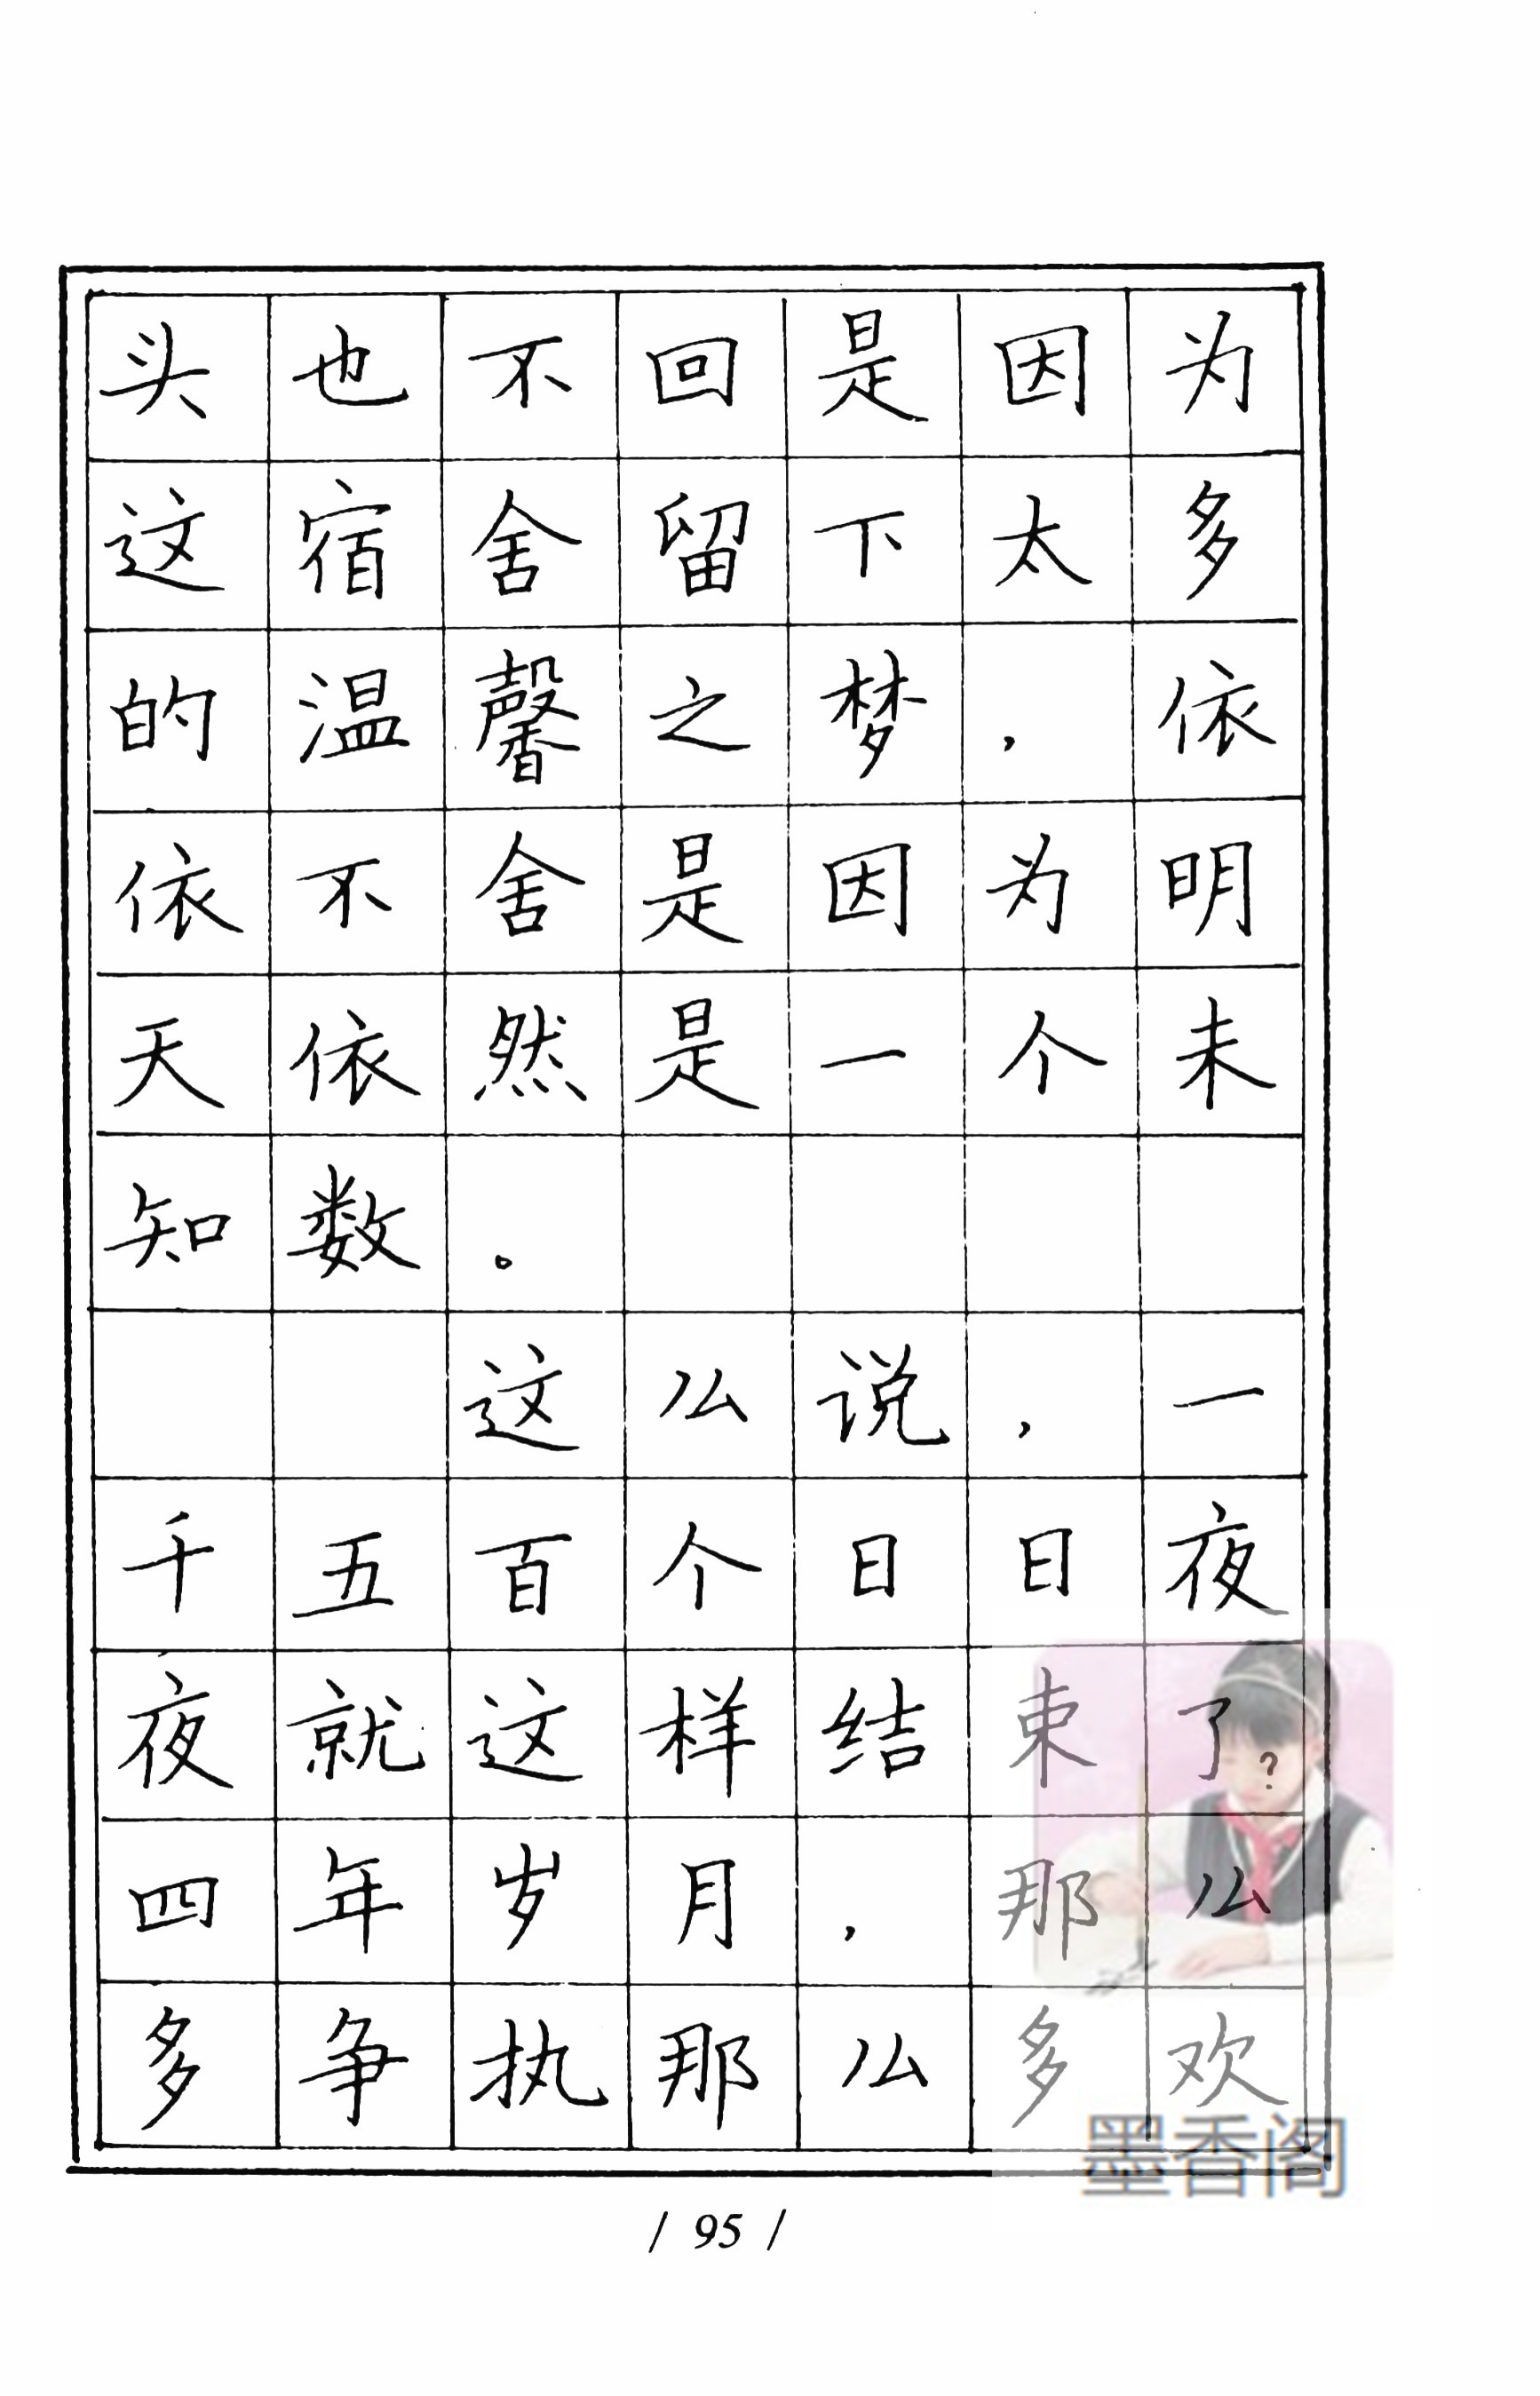 头也不回是因为
这宿舍留下太多
的温馨之梦，依
依不舍是因为明
天依然是一个未
知数。
这么说，一
千五百个日日夜
夜就这样结束了?
四年岁月，那么
多争执那么多欢
墨香阁
/ 95 /